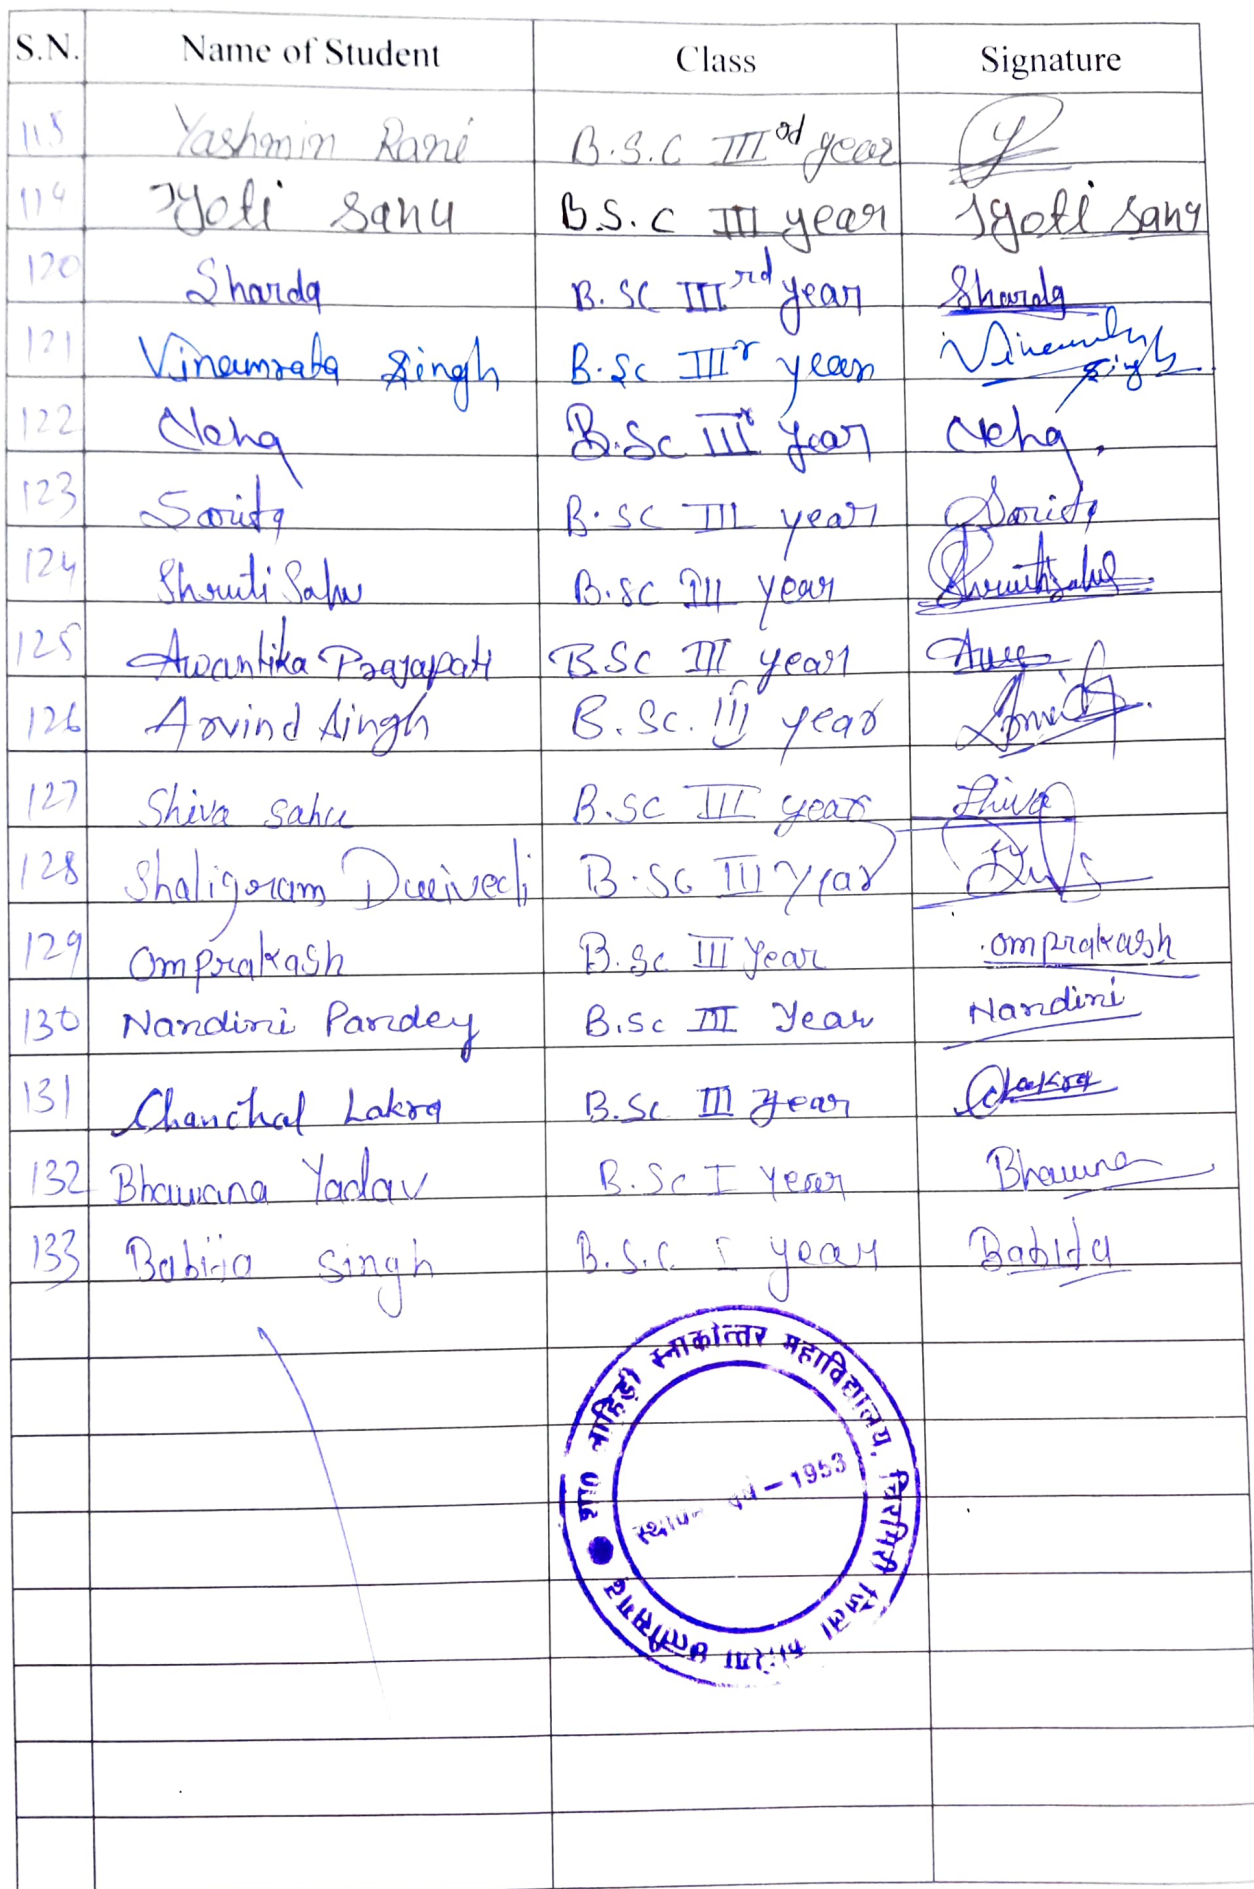 S.N. Name of Student Class Signature
118 Yashmin Rani B.S.C IIIrd year Y
119 Jyoti sahu B.S.C III year Jyoti sahu
120 Sharda B.SC IIIrd year Sharda
121 Vinamrata Singh B.Sc IIIr year Singh
122 Neha B.Sc IIIr year Neha,
123 Sarita B.SC III year Sarita
124 Shruti Sahu B.SC III year Shruti Sahu
125 Awantika Prajapati B.SC III year
126 Arvind Singh B.Sc. III year
127 Shiva Sahu B.SC III year Shiva
128 Shaligram Dwivedi B.SC III Year
129 Omprakash B.Sc III Year omprakash
130 Nandini Pandey B.Sc III Year Nandini
131 Chanchal Lakra B.Sc III Year
132 Bhawana Yadav B.Sc I Year Bhawna
133 Babita Singh B.S.C. I year Babita
शा0 लाहिड़ी स्नाकोत्तर महाविद्यालय, चिरमिरी जिला कोरिया छत्तीसगढ़
स्थापना वर्ष – 1953